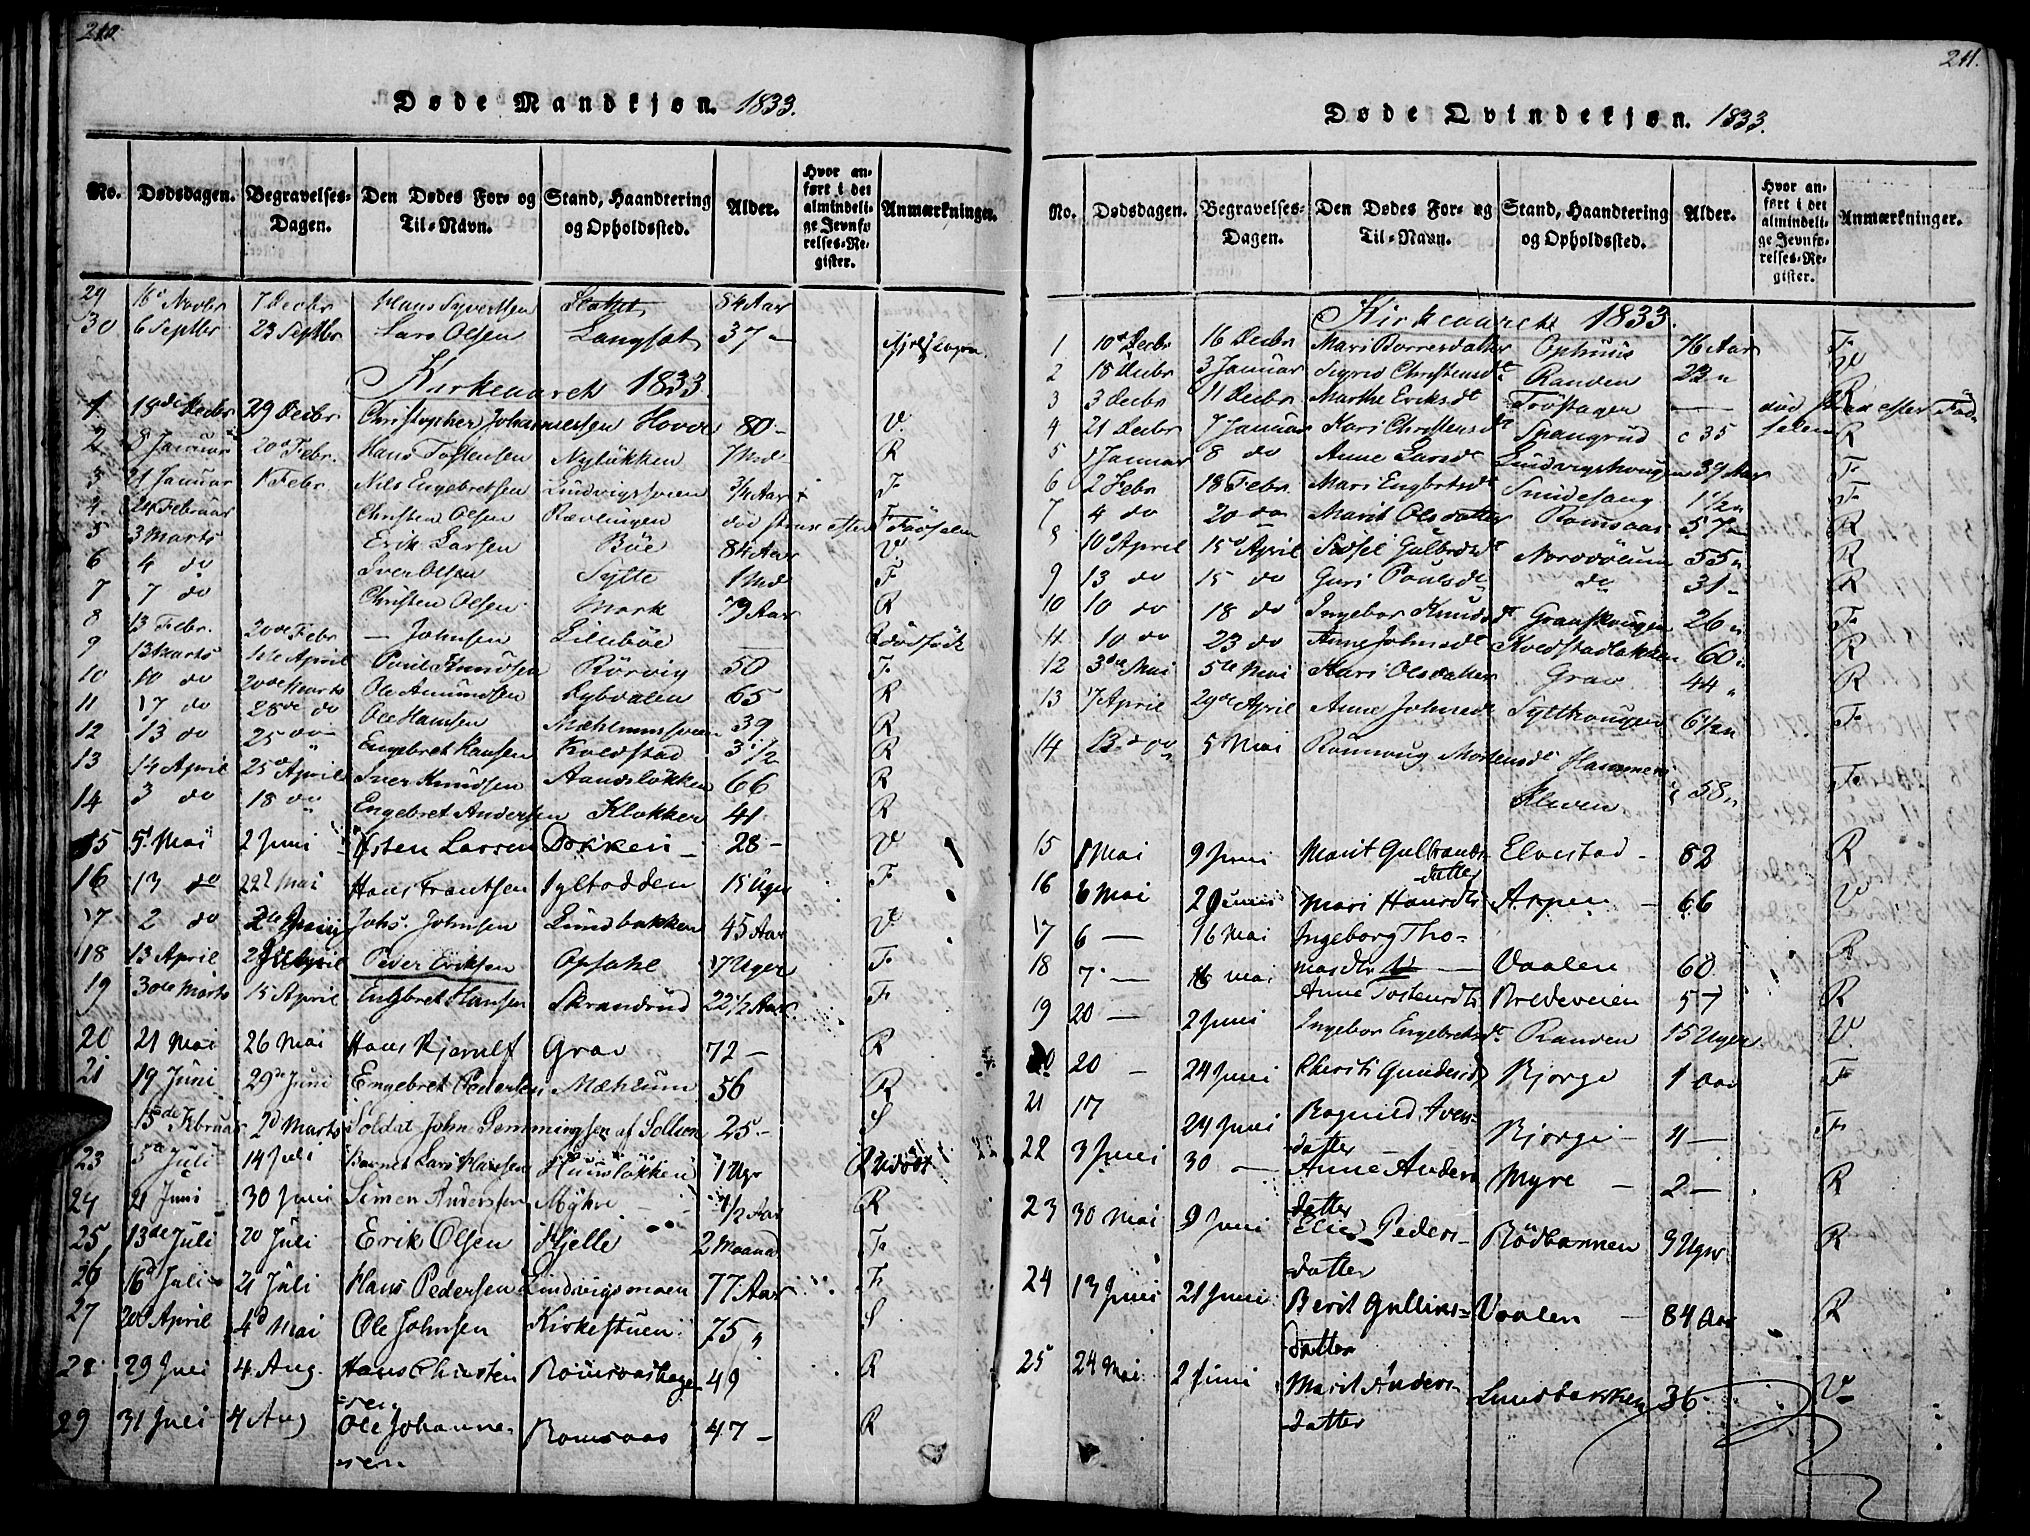 Døde Mandkjøn. 1833.
No. Dødsdagen. Begravelses-Dagen. Den Dødes For- og Til-Navn. Stand, Haandtering og Opholdssted. Alder. Hvor anført i det almindelige Jevnførelses-Register. Anmærkninger.
29 16 Novbr 7 Decbr Hans Syvertsen 54 Aar
30 6 Septbr 23 Septbr Lars Olsen Langsæt 37 -
Kirkeaaret 1833.
1 18de Decbr 29 Decbr Christopher Johannessen Hovde 80 - V.
2 8 Januar 20d Febr. Hans Tostensen Nyløkken 7 Md R
3 21 Januar 1 Febr Nils Engebretsen Lindvigsveien 3/4 Aar F
4 24 Februar Christen Olsen Rævlingen død strax efter Fødselen F
5 3 Marts Erik Larsen Bøe 84 Aar V.
6 4 do Iver Olsen Sylte 1 Md F
7 7 do Christen Olsen Mork 79 Aar R
8 13 Febr. 20de Febr — Johnsen Lillebøe — R dødfødt
9 13 Marts 1ste April Poul Knudsen Rörvig 50 F
10 10 do 20de Marts Ole Amundsen Rybdalen 65 R
11 17 do 28de do Ole Hansen Mæhlumsveen 39 R
12 13 do 25 do Engebret Hansen Koldstad 3 1/2 R
13 14 April 25d April Iver Knudsen Aandsløkken 66 R
14 3 do 18 do Engebret Andersen Klokker 41 R
15 5 Mai 2 Juni Østen Larsen Dokken - 28 - V
16 13 do 22d Mai Hans Frantsen Syltodden 15 Uger F
17 2 do Johs. Johnsen Lundbakken 45 Aar V
18 13 April Peder Eriksen Opsahl 7 Uger F
19 30de Marts 15 April Engebret Hansen Skrandrud 22 1/2 Aar F
20 21 Mai 26 Mai Hans Kjernlf Grav 72 - R
21 19 Juni 29de Juni Engebret Pedersen Mæhlum 56 R
15de Februar 2d Marts Soldat John Semmingsen af Sollien 25 - S
23 5 Juli 14 Juli Barnet Lars Hansen Huusløkken 1 Uge R
24 21 Juni 30 Juni Simen Andersen Myhre 1/2 Aar R
25 13de Juli 20 Juli Erik Olsen Hjelle 2 Maaned F
26 16d Juli 21 Juli Hans Pedersen Lindvigsmoen 77 Aar F
27 20d April 4d Mai Ole Johnsen Kirkestuen 75 " S
28 29 Juli 4 Aug. Hans Christensen Romsaashagen 49 R
29 31 Juli 4 Aug Ole Johannesen Romsaas 47 - R
211.
Døde Qvindekjøn. 1833.
No. Dødsdagen. Begravelses-Dagen. Den Dødes For- og Til-Navn. Stand, Haandtering og Opholdssted. Alder. Hvor anført i det almindelige Jevnførelses-Register. Anmærkninger.
Kirkeaaret 1833.
1 10d Decbr 16 Decbr Mari Borresdatter Ophuus 76 Aar F
2 18 Decbr 3 Januar Sigrid Christensdt Randen 22 " V
3 3 Decbr 11 Decbr Marthe Eriksdt Trøstager — R død strax efter Fødselen
4 21 Decbr 7 Januar Kari Christensdt Spangrud c 35 R
5 1 Januar 8 do Anne Larsdt Lindvigshougen 39 Aar F
6 2 Febr 18 Febr. Mari Engebretsdt Snudesang 1 1/2 " F
7 4 do 20 do Marit Olsdatter Romsaas 57 R
8 10d April 15d April Sidsel Gulbrdsdt Nordvolum 55 " R
9 13 do 15 do Guri Poulsdt do 31 - R
10 10 do 18 do Ingebor Knudsdt Granskougen 26 " F
11 10 do 23 do Anne Johnsdt Koldstadløkken 60 " R
12 3de Mai 5te Mai Kari Olsdatter Grav 44 " R
13 7 April 29de April Anne Johnsdt Sylthougen 6 1/2 " F
14 13 do 5 Mai Rönnoug Mortensdt Hammers Kleven 58 " F
15 1 Mai 9 Juni Marit Gulbrandsdatter Elvestad - 82 R
16 6 Mai 2 Juni Mari Hansdtr Aspen - 66 V
17 6 — 16 Mai Ingeborg Thomasdtr — Vaalen 60 R
18 7 — 16 Mai Anne Tostensdtr Bredeveien 57 R
19 20 — 2 Juni Ingebor Engebretsdt Randen 15 Uger V.
20 20 - 24 Juni Chersti Gundersd Bjorge 1 Aar F
21 17 24 Juni Ragnild Iversdatter Bjorge - 4 - F
22 3 Juni 30 — Anne Andersdatter Myre - 2 - R
23 30 Mai 9 Juni Elie Pedersdatter Rödbannen 3 Uger R
24 13 Juni 21 Juni Berit Gulliksdatter Vaalen - 84 Aar R
25 24 Mai 2 Juni Marit Andersdatter Lundbakken 36 V